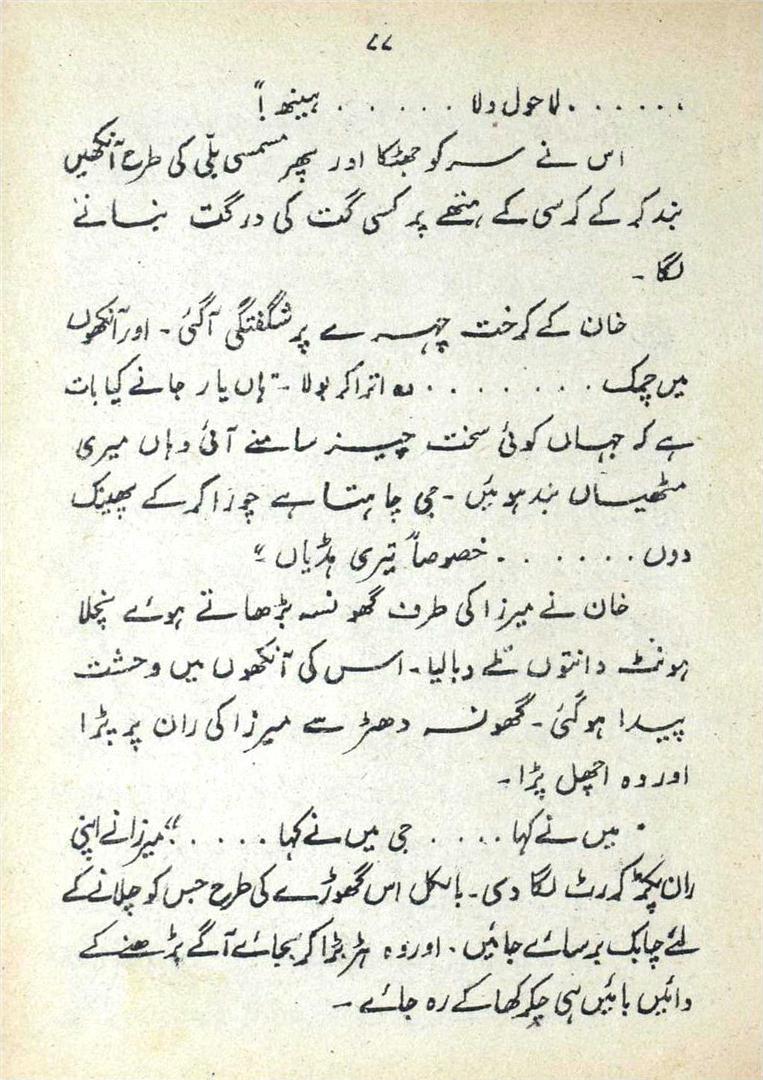 ۷۷
. . . . . . لاحول ولا . . . . . . ہینھ!"
اس نے سر کو جھٹکا اور پھر مسمسی بلّی کی طرح آنکھیں
بند کر کے کرسی کے ہتھے پر کسی گت کی درگت بنانے
لگا۔
خان کے کرخت چہرے پر شگفتگی آگئی۔ اور آنکھوں
میں چمک . . . . . . . . وہ اترا کر بولا۔ "ہاں یار جانے کیا بات
ہے کہ جہاں کوئی سخت چیز سامنے آئی وہاں میری
مٹھیاں بند ہوئیں۔ جی چاہتا ہے چورا کر کے پھینک
دوں . . . . . . خصوصاً تیری ہڈیاں۔"
خان نے میرزا کی طرف گھونسہ بڑھاتے ہوئے نچلا
ہونٹ دانتوں تلے دبا لیا۔ اس کی آنکھوں میں وحشت
پیدا ہوگئی۔ گھونسہ دھڑ سے میرزا کی ران پر پڑا
اور وہ اچھل پڑا۔
"میں نے کہا . . . . جی میں نے کہا . . . . ." میرزا نے اپنی
ران پکڑ کر رٹ لگا دی۔ بالکل اس گھوڑے کی طرح جس کو چلانے کے
لئے چابک برسائے جائیں۔ اور وہ ہڑبڑا کر بجائے آگے بڑھنے کے
دائیں بائیں ہی چکر کھا کے رہ جائے۔